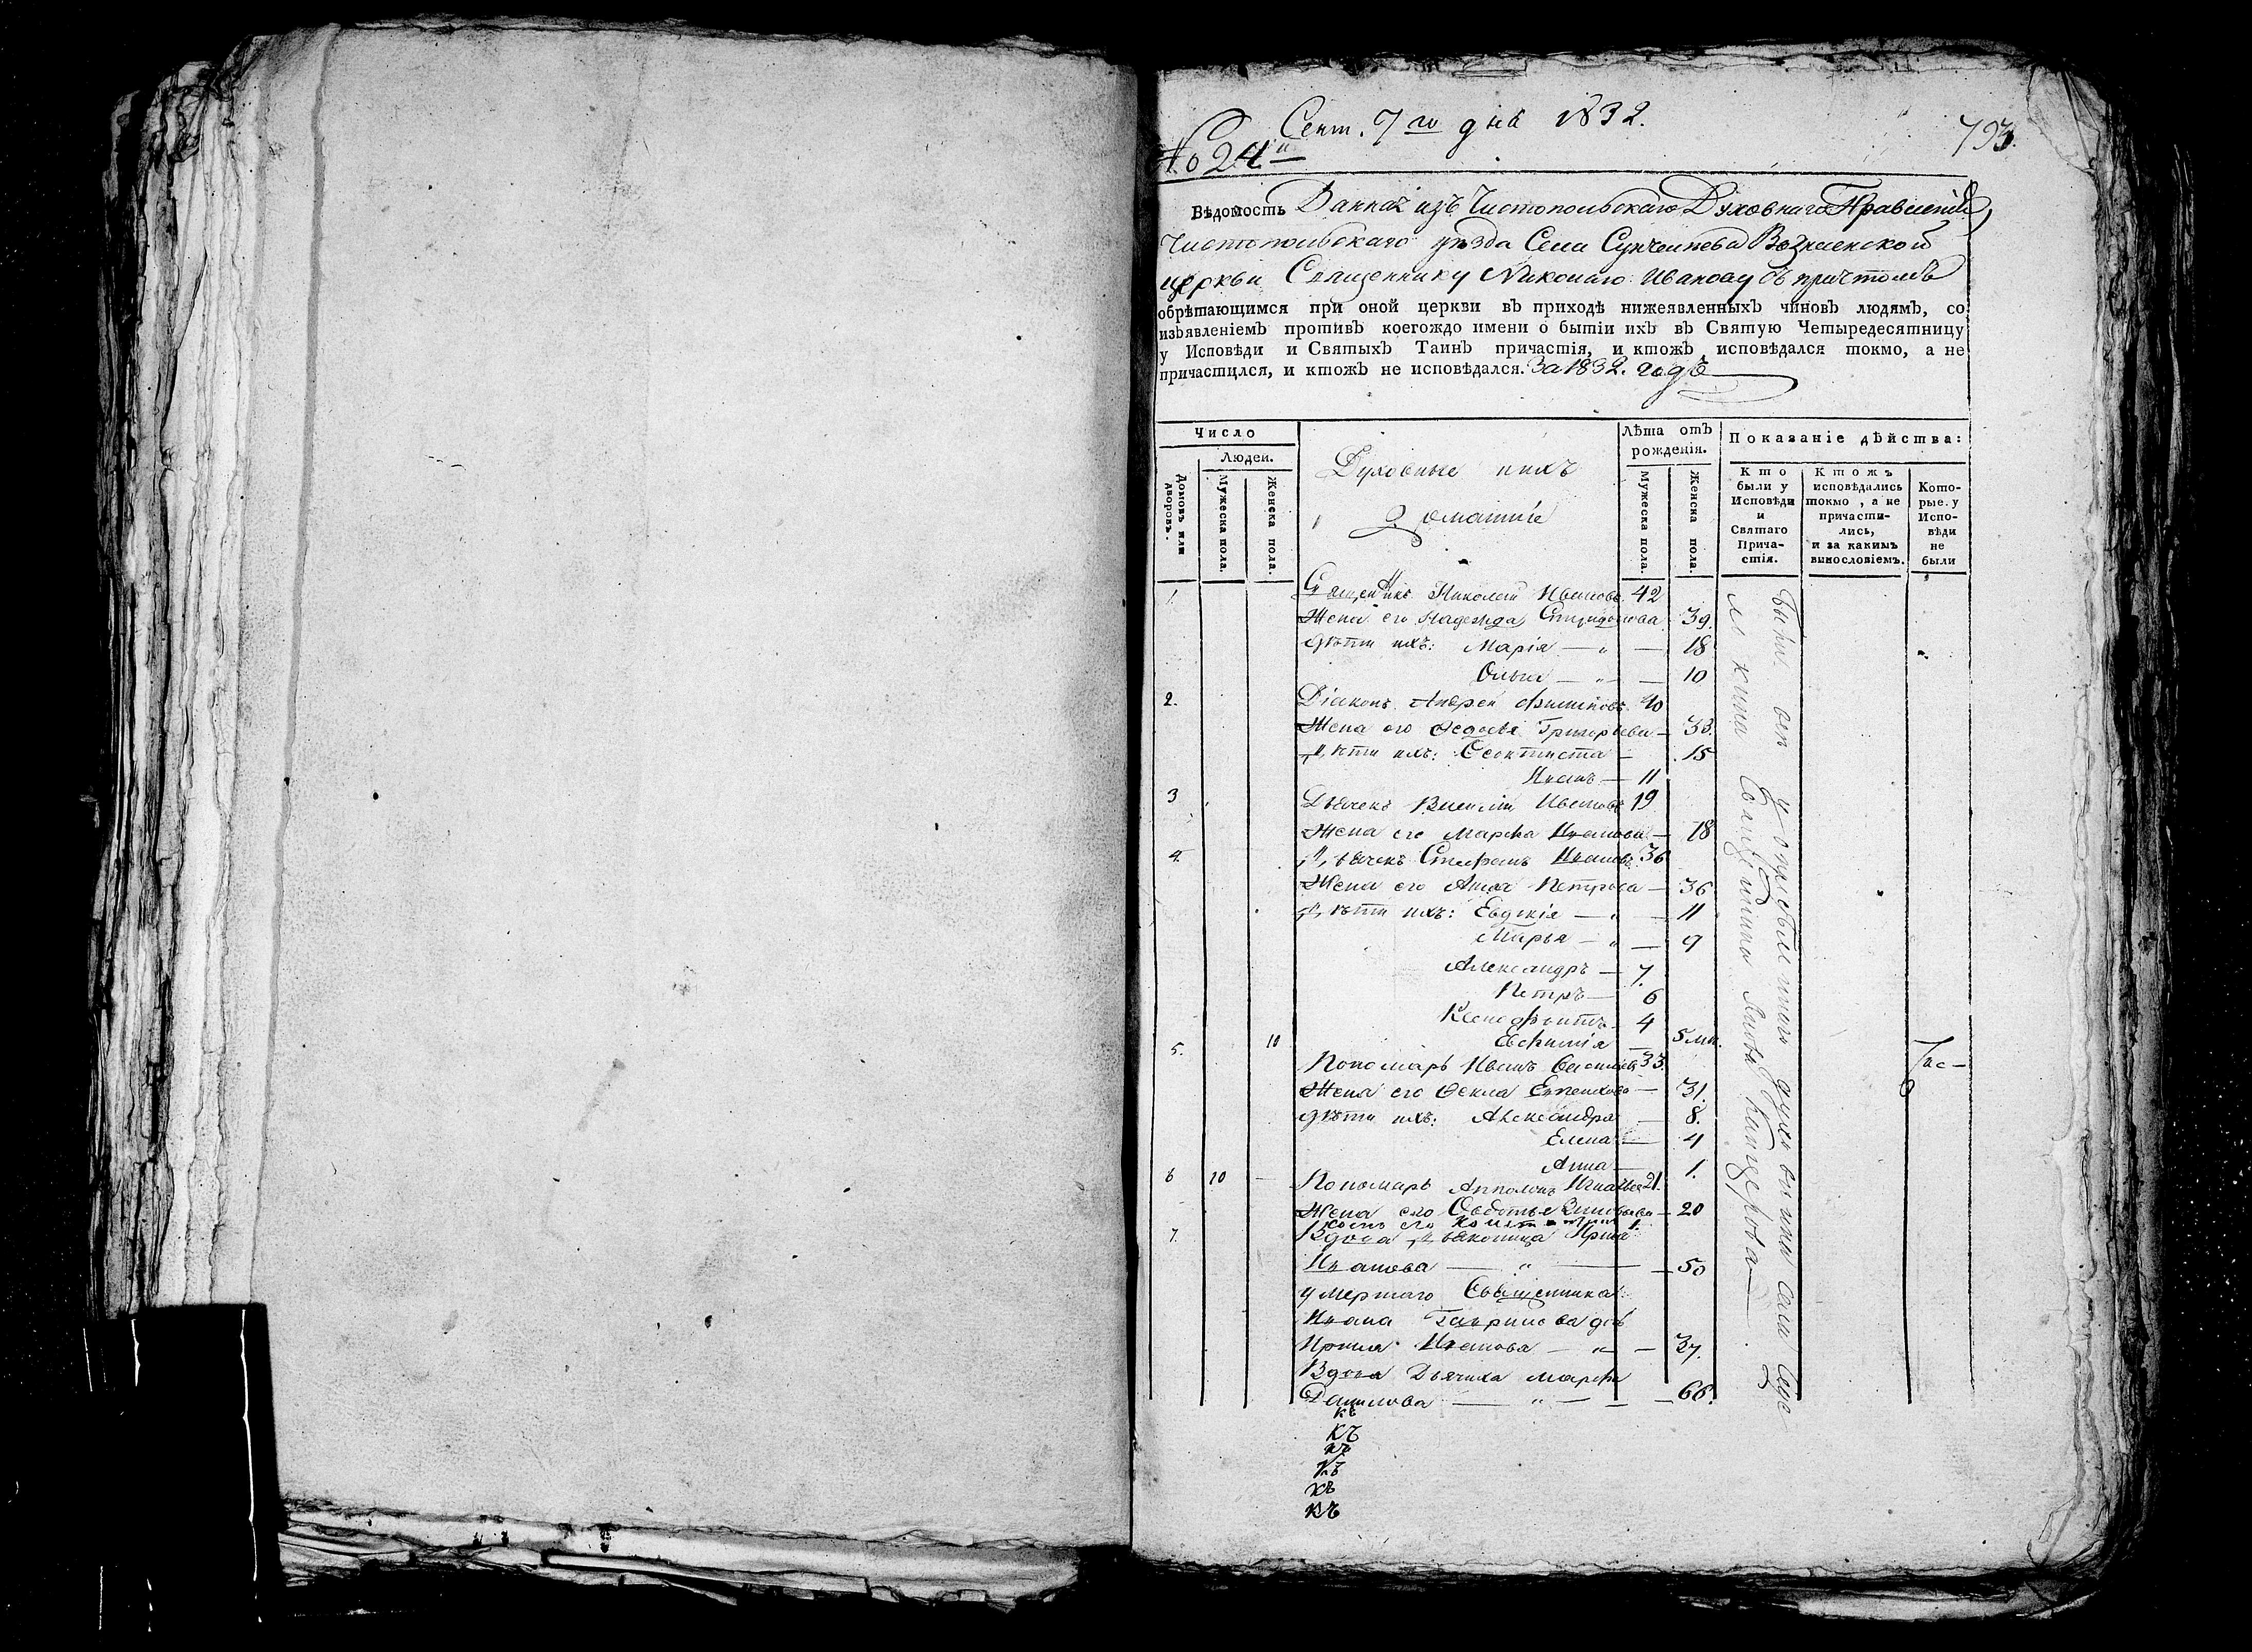 Сент. 7го дня 1832.
793.
№ 24
Вѣдомость Данная изъ Чистопольскаго Духовнаго Правленія,
Чистопольскаго уѣзда Села Сунчелеева Вознесенской
церкви Священнику Николаю Иванову съ причтомъ
обрѣтающимся при оной церкви въ приходѣ нижеявленныхъ чиновъ людямъ, со
изъявленіемъ противъ коегождо имени о бытіи ихъ въ Святую Четыредесятницу
у Исповѣди и Святыхъ Таинъ причастія, и ктожъ исповѣдался токмо, а не
причастился, и ктожъ не исповѣдался. За 1832. годъ
Число
Людей.
Домовъ или дворовъ.
Мужеска пола.
Женска пола.
Духовные ихъ
домашніе
Лѣта отъ рожденія.
Мужеска пола.
Женска пола.
Показаніе дѣйства:
Кто были у Исповѣди и Святаго Причастія.
Ктожъ исповѣдались токмо, а не причастились, и за какимъ винословіемъ.
Которые у Исповѣди не были
1. Священникъ Николай Ивановъ 42
Жена его Надежда Спиридонова 39.
Дѣти ихъ: Марія — „ — 18
Ольга — „ — 10
2. Діаконъ Андрей Филиповъ 40
Жена его Федосья Григорьева — 33.
Дѣти ихъ: Феоктиста — 15
Иванъ — 11
3 Дьячекъ Василій Ивановъ 19
Жена его Марѳа Иванова — 18
4. Дьячекъ Стефанъ Ивановъ 36
Жена его Анна Петрова — 36
Дѣти ихъ: Евдокія — „ — 11
Марья — „ — 9
Александръ — 7.
Петръ — 6
Ксенофонтъ 4
10 Евфимія — 5 мц.
5. Пономарь Иванъ 33.
Жена его Ѳекла — 31.
Дѣти ихъ: Александра — 8.
Елена — 4
Анна — 1.
6 10 Пономарь Апполонъ Игнатьев 21.
Жена его Овдотья — 20
сынъ его 1.
7. Вдова Дьяконица Ирина
Иванова — „ — 50
умершаго Священника
Ивана Гаврилова дочь
Ирина Иванова — „ — 37.
Вдова Дьячиха Марѳа
Данилова — „ — 66.
къ
къ
къ
къ
къ
къ